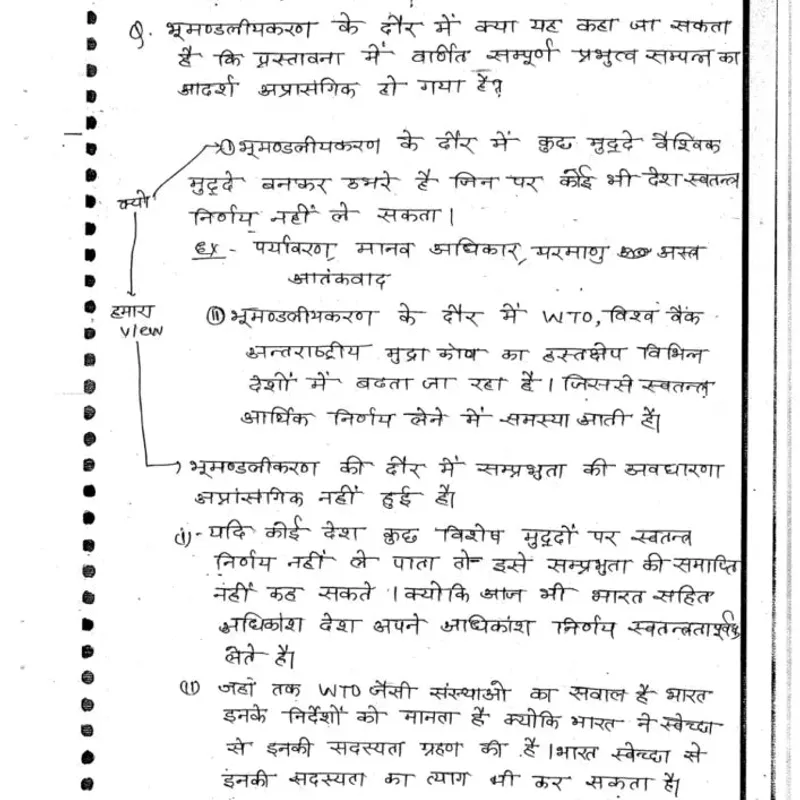 Q. भूमण्डलीयकरण के दौर में क्या यह कहा जा सकता
है कि प्रस्तावना में वर्णित सम्पूर्ण प्रभुत्व सम्पन्न का
आदर्श अप्रासंगिक हो गया है?
(i) भूमण्डलीयकरण के दौर में कुछ मुद्दे वैश्विक
मुद्दे बनकर उभरे है जिन पर कोई भी देश स्वतन्त्र
क्यों
निर्णय नहीं ले सकता।
Ex - पर्यावरण, मानव अधिकार, परमाणु अस्त्र
आतंकवाद
हमारा
view
(ii) भूमण्डलीयकरण के दौर में WTO, विश्व बैंक
अन्तराष्ट्रीय मुद्रा कोष का हस्तक्षेप विभिन्न
देशों में बढता जा रहा है। जिससे स्वतन्त्र
आर्थिक निर्णय लेने में समस्या आती है।
भूमण्डलीकरण की दौर में सम्प्रभुता की अवधारणा
अप्रासंगिक नहीं हुई है।
(i)- यदि कोई देश कुछ विशेष मुद्दों पर स्वतन्त्र
निर्णय नहीं ले पाता तो इसे सम्प्रभुता की समाप्ति
नहीं कह सकते। क्योकि आज भी भारत सहित
अधिकांश देश अपने अधिकांश निर्णय स्वतन्त्रतापूर्वक
लेते है।
(ii) जहां तक WTO जैसी संस्थाओ का सवाल है भारत
इनके निर्देशों को मानता है क्योकि भारत ने स्वेच्छा
से इनकी सदस्यता ग्रहण की है। भारत स्वेच्छा से
इनकी सदस्यता का त्याग भी कर सकता है।